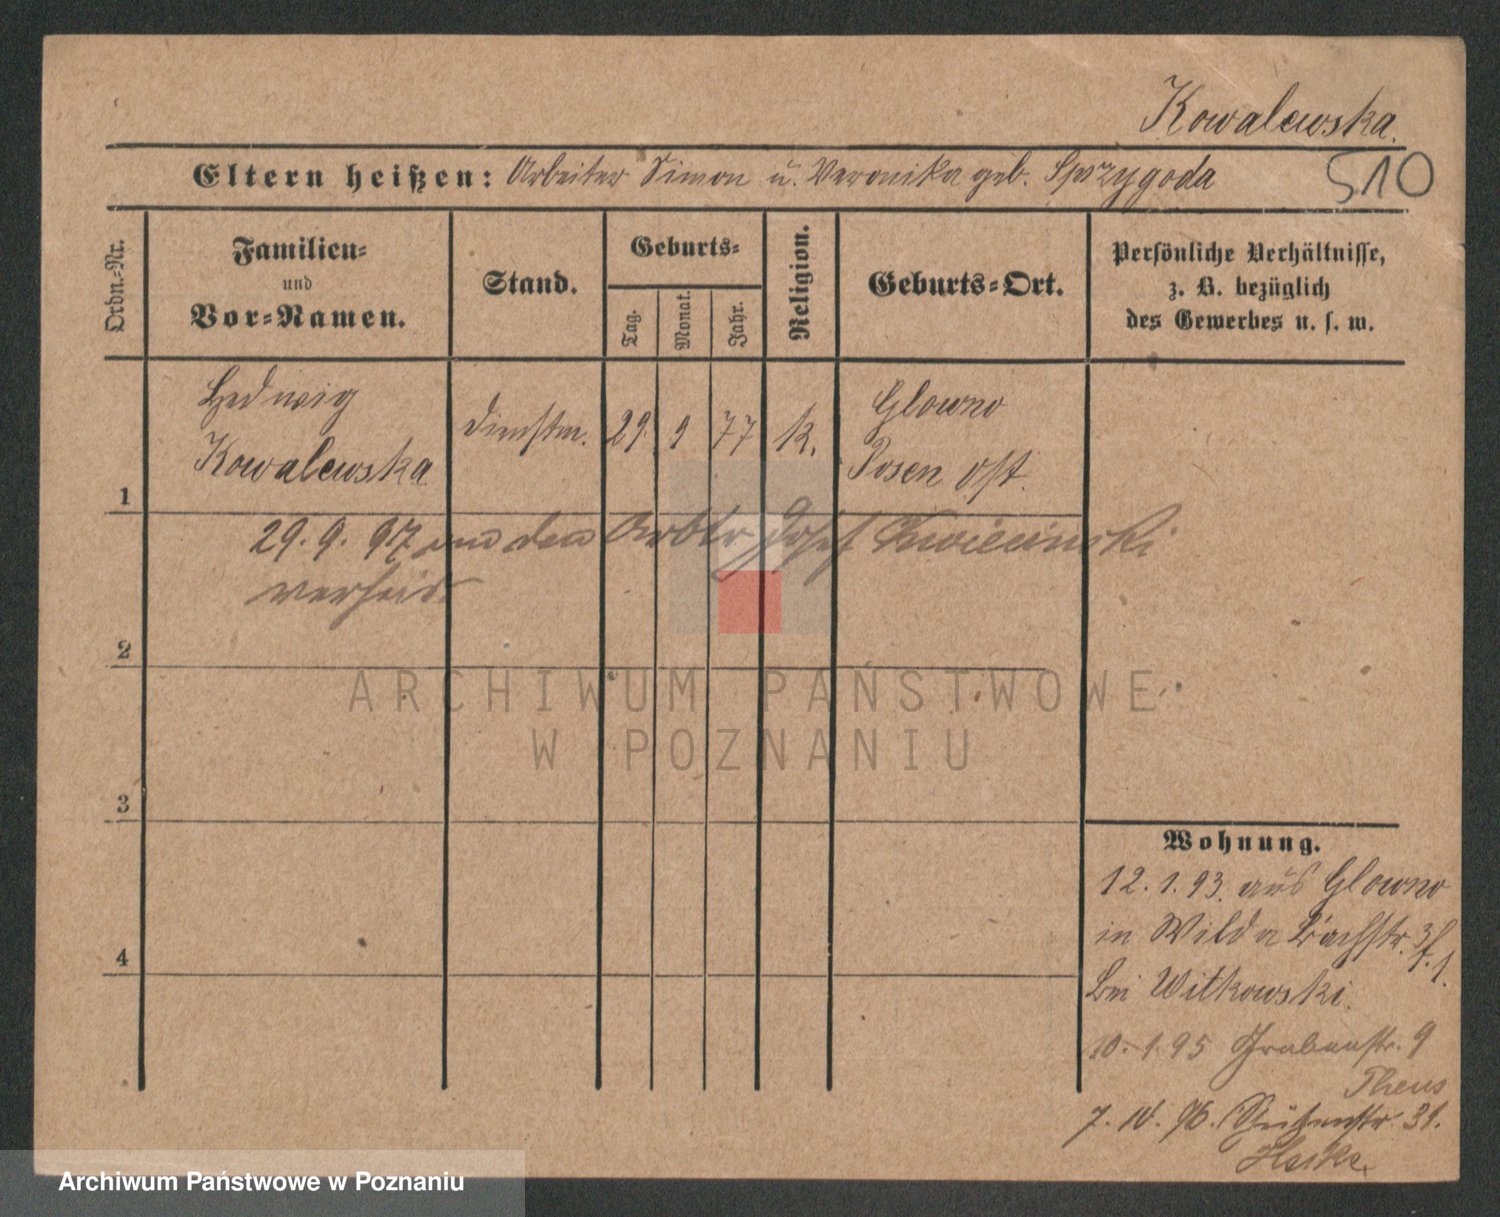 Kowalewska.
510
Eltern heißen: Arbeiter Simon u. Veronika geb. Przygoda
Ordn.-Nr.
Familien-
und
Vor-Namen.
Stand.
Geburts-
Tag.
Monat.
Jahr.
Religion.
Geburts-Ort.
Persönliche Verhältnisse,
z. B. bezüglich
des Gewerbes u. s. w.
1
Hedwig
Kowalewska
Dienstm.
29.
9
77
K.
Glowno
Posen Ost.
29. 9. 97 an den Arbtr Josef
verheir.
2
3
4
Wohnung.
12. 1. 93. aus Glowno
in Wilda Bachstr.
bei Witkowski.
10. 1. 95 Grabenstr. 9
Theus
7. 10. 96. Schützenstr. 31.
ARCHIWUM PAŃSTWOWE
W POZNANIU
Archiwum Państwowe w Poznaniu